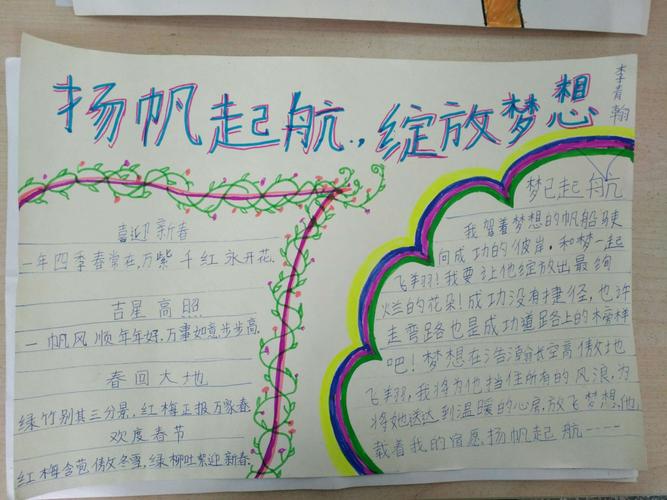 扬帆起航,绽放梦想
李青翰
喜迎新春
一年四季春常在,万紫千红永开花.
吉星高照
一帆风顺年年好,万事如意步步高.
春回大地
绿竹别其三分景,红梅正报万家春.
欢度春节
红梅含苞傲冬雪,绿柳吐絮迎新春.
梦已起航
我驾着梦想的帆船驶
向成功的彼岸,和梦一起
飞翔!我要让他绽放出最绚
烂的花朵!成功没有捷径,也许
走弯路也是成功道路上的榜样
吧!梦想在浩瀚长空高傲地
飞翔,我将为他挡住所有的风浪,为
将她送达到温暖的心房,放飞梦想,他
载着我的宿愿扬帆起航----